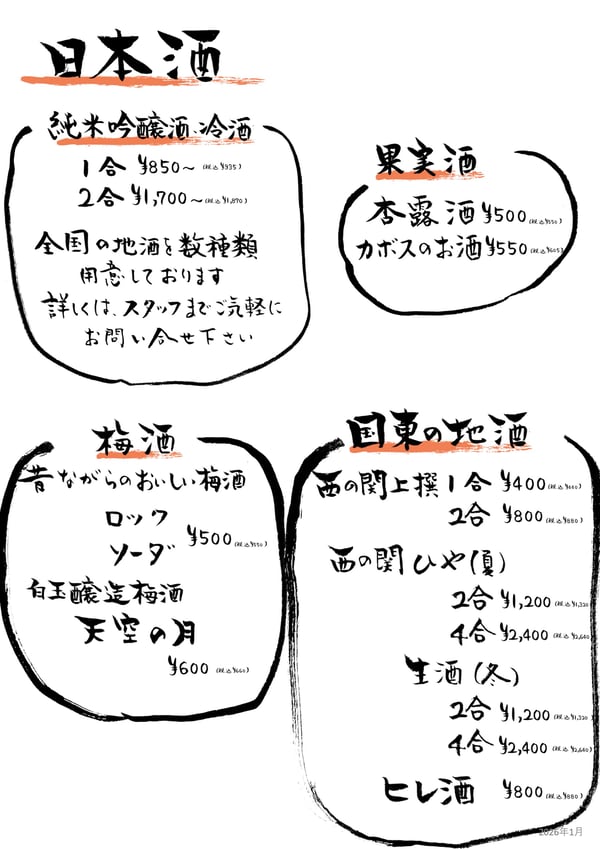 日本酒
純米吟醸酒・冷酒
1合 ¥850～(税込¥935)
2合 ¥1,700～(税込¥1,870)
全国の地酒を数種類
用意しております
詳しくは、スタッフまでご気軽に
お問い合せ下さい
果実酒
杏露酒 ¥500(税込¥550)
カボスのお酒 ¥550(税込¥605)
梅酒
昔ながらのおいしい梅酒
ロック
ソーダ
¥500(税込¥550)
白玉醸造梅酒
天空の月
¥600(税込¥660)
国東の地酒
西の関上撰 1合 ¥400(税込¥440)
2合 ¥800(税込¥880)
西の関ひや(夏)
2合 ¥1,200(税込¥1,320)
4合 ¥2,400(税込¥2,640)
生酒(冬)
2合 ¥1,200(税込¥1,320)
4合 ¥2,400(税込¥2,640)
ヒレ酒 ¥800(税込¥880)
2026年1月